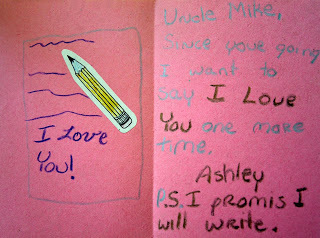 I Love
You!
Uncle Mike,
Sinse your going
I want to
say I Love
You one more
time.
Ashley
P.S. I promis I
will write.